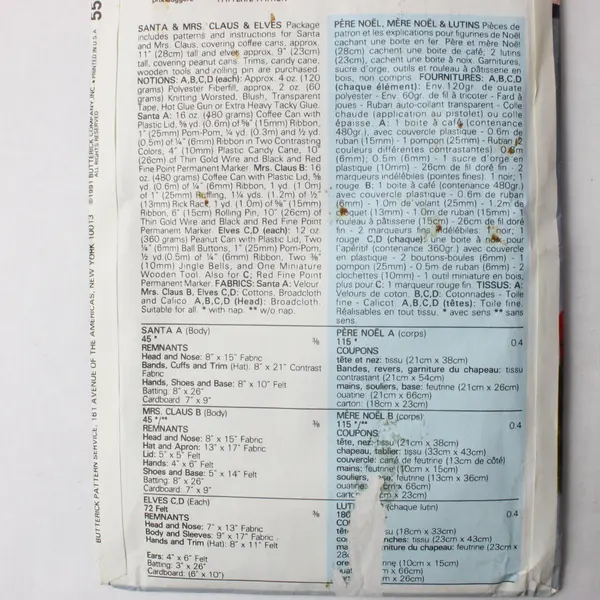 SANTA & MRS. CLAUS & ELVES Package
includes patterns and instructions for Santa
and Mrs. Claus, covering coffee cans, approx.
11" (28cm) tall and elves approx. 9" (23cm)
tall, covering peanut cans. Trims, candy cane,
wooden tools and rolling pin are purchased.
NOTIONS: A,B,C,D (each): Approx. 4 oz. (120
grams) Polyester Fiberfil, approx. 2 oz. (60
grams) Knitting Worsted, Blush, Transparent
Tape, Hot Glue Gun or Extra Heavy Tacky Glue.
Santa A: 16 oz. (480 grams) Coffee Can with
Plastic Lid, ⅝ yd. (0.6m) of ⅝" (15mm) Ribbon,
1" (25mm) Pom-Pom, ¼ yd. (0.3m) and ½ yd.
(0.5m) of ¼" (6mm) Ribbon in Two Contrasting
Colors, 4" (10mm) Plastic Candy Cane, 10"
(26cm) of Thin Gold Wire and Black and Red
Fine Point Permanent Marker. Mrs. Claus B: 16
oz. (480 grams) Coffee Can with Plastic Lid, ⅝
yd. (0.6m) of ¼" (6mm) Ribbon, 1 yd. (1.0m)
of 1" (25mm) Ruffling, 1¼ yds. (1.2m) of ½"
(13mm) Rick Rack, 1 yd. (1.0m) of ⅝" (15mm)
Ribbon, 6" (15cm) Rolling Pin, 10" (26cm) of
Thin Gold Wire and Black and Red Fine Point
Permanent Marker. Elves C,D (each): 12 oz.
(360 grams) Peanut Can with Plastic Lid, Two
¼" (6mm) Ball Buttons, 1" (25mm) Pom-Pom,
½ yd. (0.5m) of ¼" (6mm) Ribbon, Two ⅜"
(10mm) Jingle Bells, and One Miniature
Wooden Tool. Also for C; Red Fine Point
Permanent Marker. FABRICS: Santa A: Velour.
Mrs. Claus B, Elves C,D: Cottons, Broadcloth
and Calico. A,B,C,D (Head): Broadcloth.
Suitable for all. * with nap. ** w/o nap.
SANTA A (Body)
45 * ⅜
REMNANTS
Head and Nose: 8" x 15" Fabric
Bands, Cuffs and Trim (Hat): 8" x 21" Contrast
Fabric
Hands, Shoes and Base: 8" x 10" Felt
Batting: 8" x 26"
Cardboard: 7" x 9"
MRS. CLAUS B (Body)
45 */** ⅜
REMNANTS
Head and Nose: 8" x 15" Fabric
Hat and Apron: 13" x 17" Fabric
Lid: 5" x 5" Felt
Hands: 4" x 6" Felt
Shoes and Base: 5" x 14" Felt
Batting: 8" x 26"
Cardboard: 7" x 9"
ELVES C,D (Each)
72 Felt ⅜
REMNANTS
Head and Nose: 7" x 13" Fabric
Body and Sleeves: 9" x 17" Fabric
Hands and Trim (Hat): 8" x 11" Felt
Ears: 4" x 6" Felt
Batting: 3" x 26"
Cardboard: (6" x 10")
PÈRE NOËL, MÈRE NOËL & LUTINS Pièces de
patron et les explications pour figurines de Noël
cachant une boite en fer. Père et mère Noël
(28cm) cachent une boite de café; 2 lutins
(23cm), cachent une boite à noix. Garnitures,
sucre d'orge, outils et rouleau à pâtisserie en
bois, non compris. FOURNITURES: A,B,C,D
(chaque élément): Env. 120gr. de ouate
polyester - Env. 60gr. de fil à tricoter - Fard à
joues - Ruban auto-collant transparent - Colle
chaude (application au pistolet) ou colle
épaisse. A: 1 boite à café (contenance
480gr.), avec couvercle plastique - 0.6m de
ruban (15mm) - 1 pompon (25mm) - Ruban (2
couleurs différentes contrastantes) 0.3m
(6mm); 0.5m (6mm) - 1 sucre d'orge en
plastique (10mm) - 26cm de fil doré fin - 2
marqueurs indélébiles (pointes fines). 1 noir; 1
rouge. B: 1 boite à café (contenance 480gr.)
avec couvercle plastique - 0.6m de ruban
(6mm) - 1.0m de volant (25mm) - 1.2m de
croquet (13mm) - 1.0m de ruban (15mm) - 1
rouleau à pâtisserie (15cm) - 26cm de fil doré
fin - 2 marqueurs fins indélébiles: 1 noir; 1
rouge C,D (chaque): une boite à noix pour
l'apéritif (contenance 360gr.) avec couvercle
en plastique - 2 boutons-boules (6mm) - 1
pompon (25mm) - 0.5m de ruban (6mm) - 2
clochettes (10mm) - 1 outil miniature en bois;
plus pour C: 1 marqueur rouge fin. TISSUS: A:
Velours de coton. B,C,D: Cotonnades - Toile
fine - Calicot A,B,C,D (têtes): Toile fine.
Réalisables en tout tissu. * avec sens ** sans
sens.
PÈRE NOËL A (corps)
115 * 0.4
COUPONS
tête et nez: tissu (21cm x 38cm)
Bandes, revers, garniture du chapeau: tissu
contrastant (21cm x 54cm)
mains, souliers, base: feutrine (21cm x 26cm)
ouatine: (21cm x 66cm)
carton: (18cm x 23cm)
MÈRE NOËL B (corps)
115 */** 0.4
COUPONS
tête, nez: tissu (21cm x 38cm)
chapeau, tablier: tissu (33cm x 43cm)
couvercle: carré de feutrine (13cm de côté)
mains: feutrine (10cm x 15cm)
souliers, base: feutrine (13cm x 36cm)
ouatine: cm x 66cm)
cart cm x 23cm)
LUT (chaque lutin)
180 0.4
CO
têt su (18cm x 33cm)
co nches: tissu (23cm x 43cm)
ma rniture du chapeau: feutrine (23cm x
28c
ore (10cm x 15cm)
ouat m x 66cm)
cart m x 26cm)
BUTTERICK PATTERN SERVICE, 161 AVENUE OF THE AMERICAS, NEW YORK 10013 ©1991 BUTTERICK COMPANY, INC. • PRINTED IN U.S.A.
ALL RIGHTS RESERVED
55